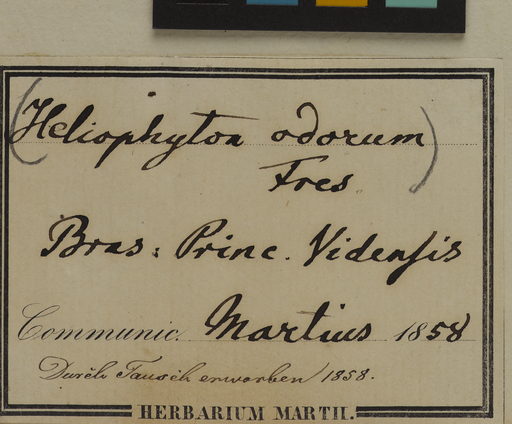 (Heliophyton odorum)
Fres.
Bras: Princ. Videnſis
Communic. Martius 1858
Durch Tausch erworben 1858.
HERBARIUM MARTII.